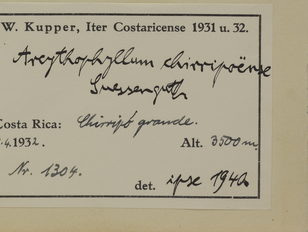 W. Kupper, Iter Costaricense 1931 u. 32.
Arcythophyllum chirripoënse
Suessenguth
Costa Rica: Chirripó grande.
.4.1932. Alt. 3500 m.
Nr. 1304.
det. ipse 1940